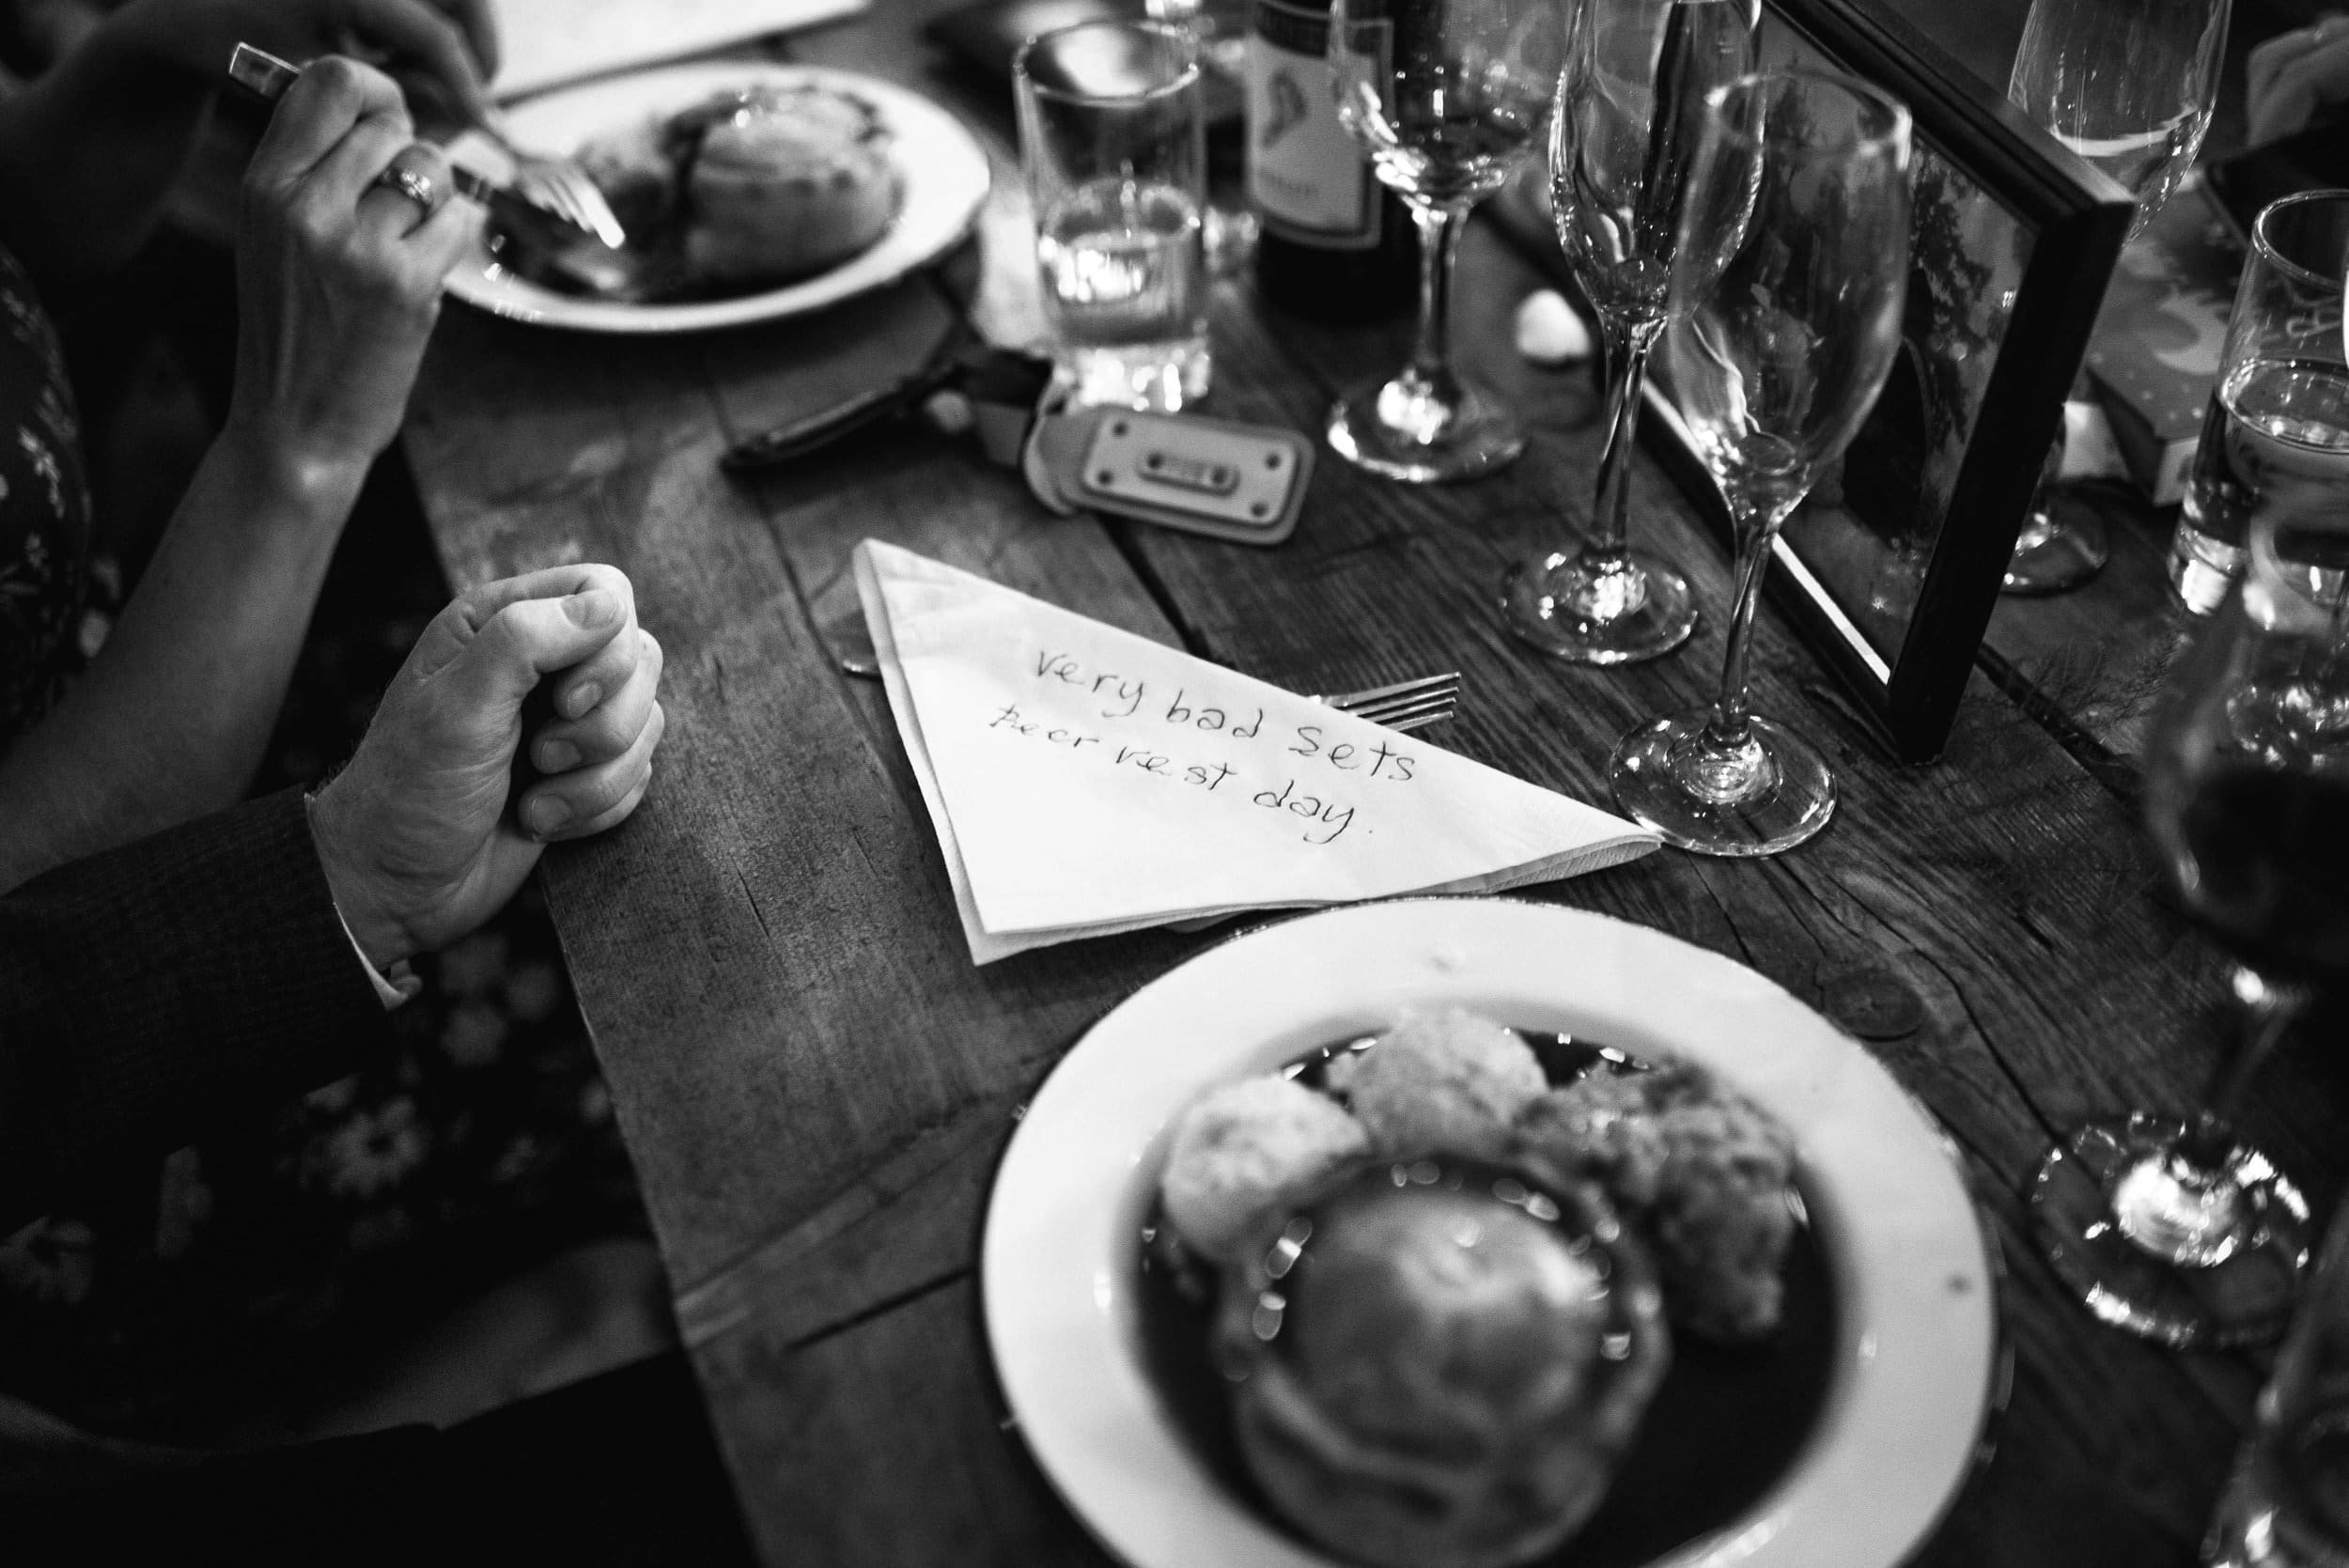 very bad sets
Beer vest day.